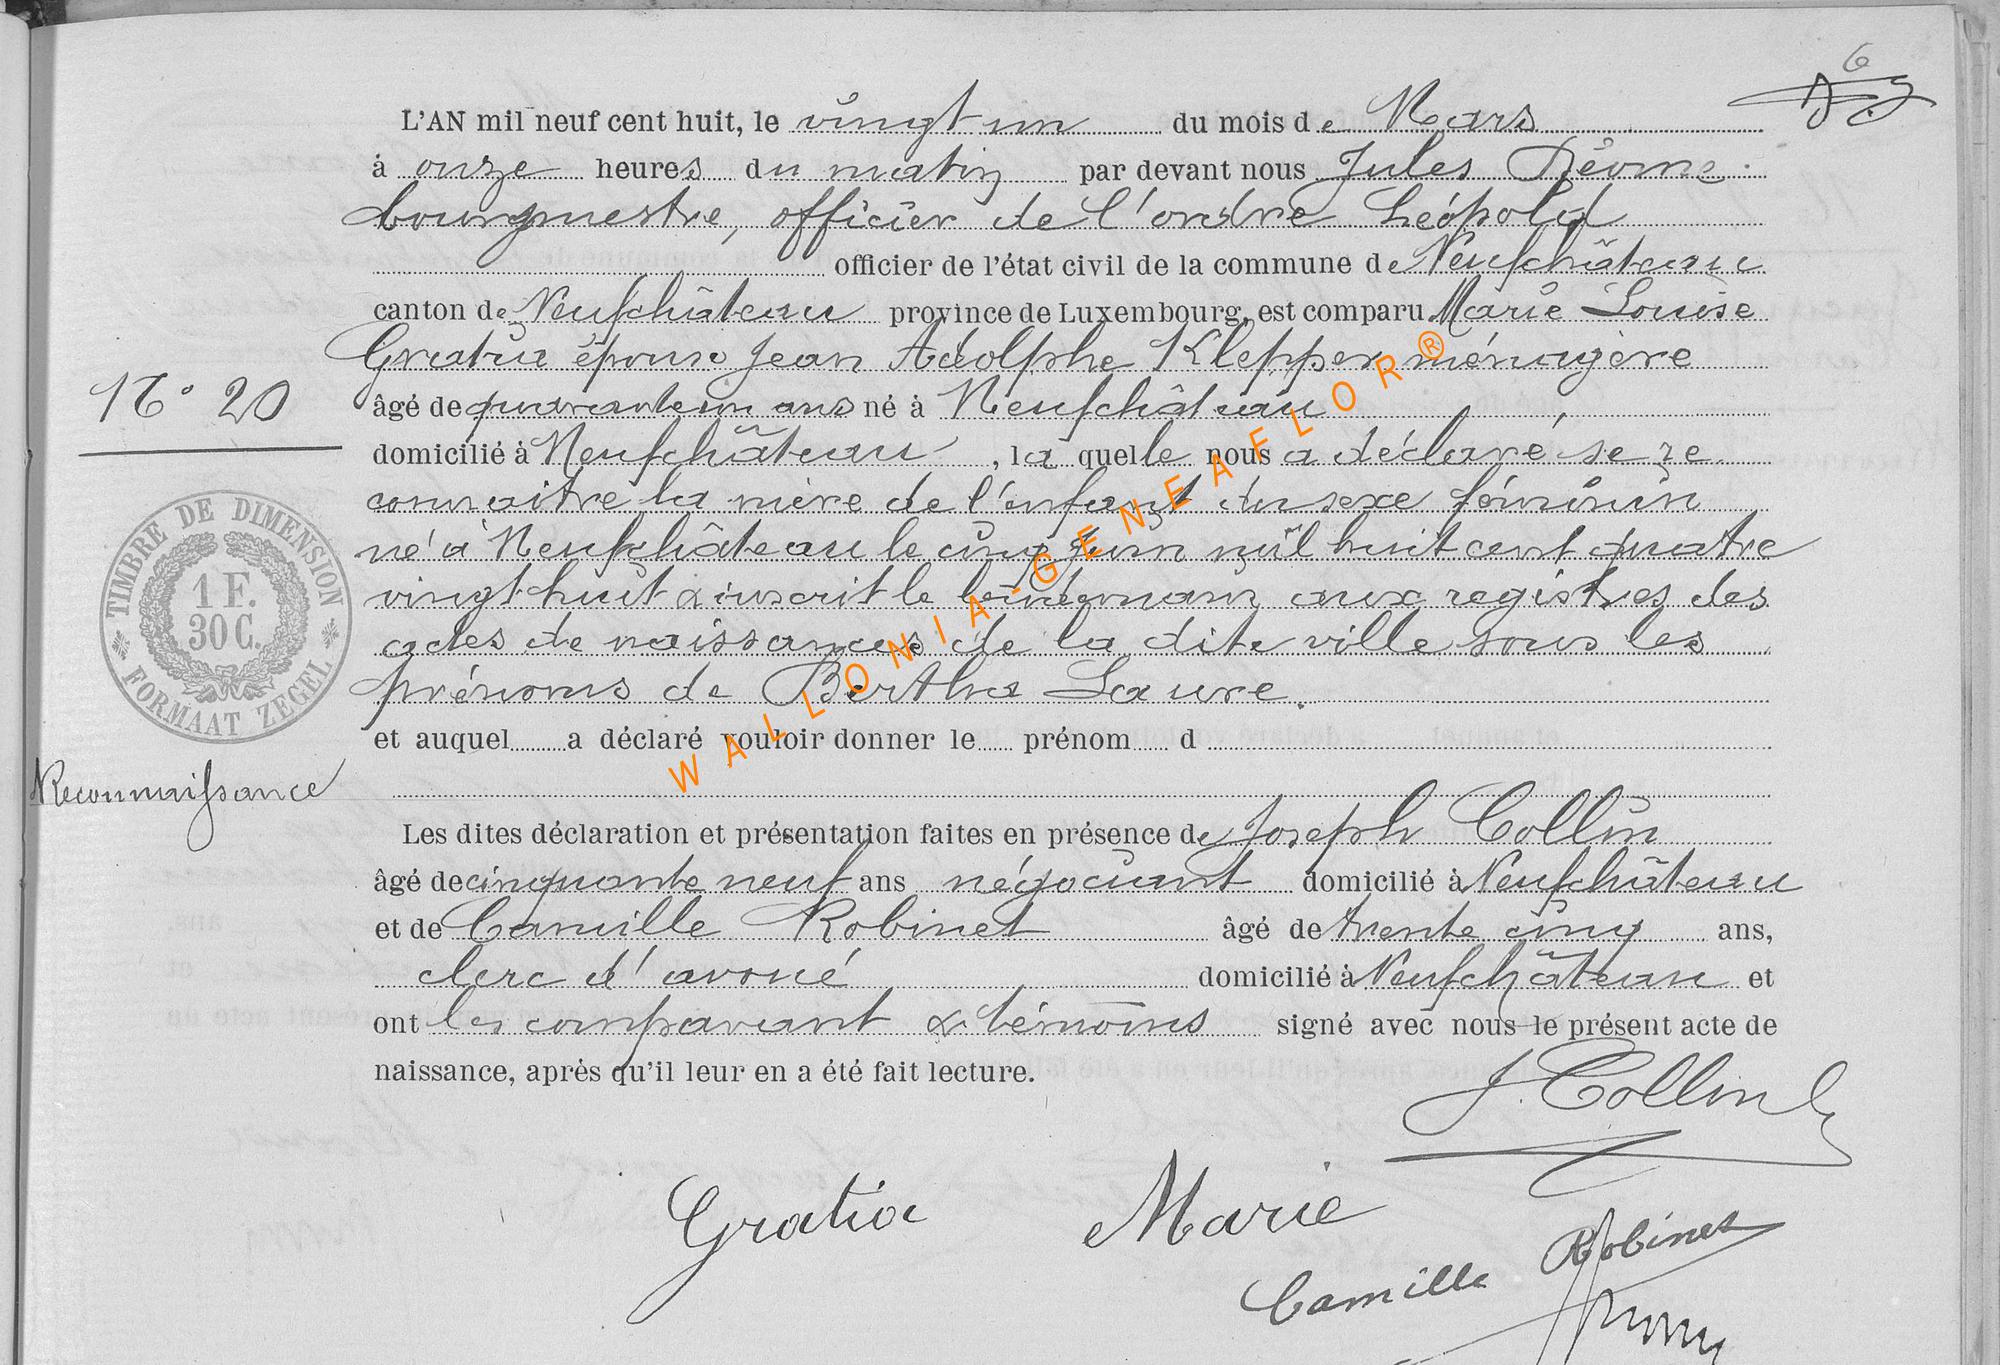 6
L'AN mil neuf cent huit, le vingt un du mois de Mars
à onze heures du matin par devant nous Jules
bourgmestre, officier de l'ordre Léopold
officier de l'état civil de la commune de Neufchâteau
canton de Neufchâteau province de Luxembourg, est comparu Marie Louise
Gratia épouse Jean Adolphe Klepper ménagère
N° 20
âgé de quarante un ans né à Neufchâteau
domicilié à Neufchâteau, la quelle nous a déclaré se re
connaitre la mère de l'enfant du sexe féminin
né à Neufchâteau le cinq juin mil huit cent quatre
vingt huit & inscrit le aux registres des
actes de naissances de la dite ville sous les
prénoms de Bertha Laure.
et auquel a déclaré vouloir donner le prénom d
TIMBRE DE DIMENSION
1 F.
30 C.
FORMAAT ZEGEL
Reconnaissance
Les dites déclaration et présentation faites en présence de Joseph Collin
âgé de cinquante neuf ans négociant domicilié à Neufchâteau
et de Camille Robinet âgé de trente cinq ans,
clerc d'avoué domicilié à Neufchâteau et
ont les comparant & témoins signé avec nous le présent acte de
naissance, après qu'il leur en a été fait lecture.
J. Collin
Gratia Marie
Camille Robinet
WALLONIA-GENEAFLOR®